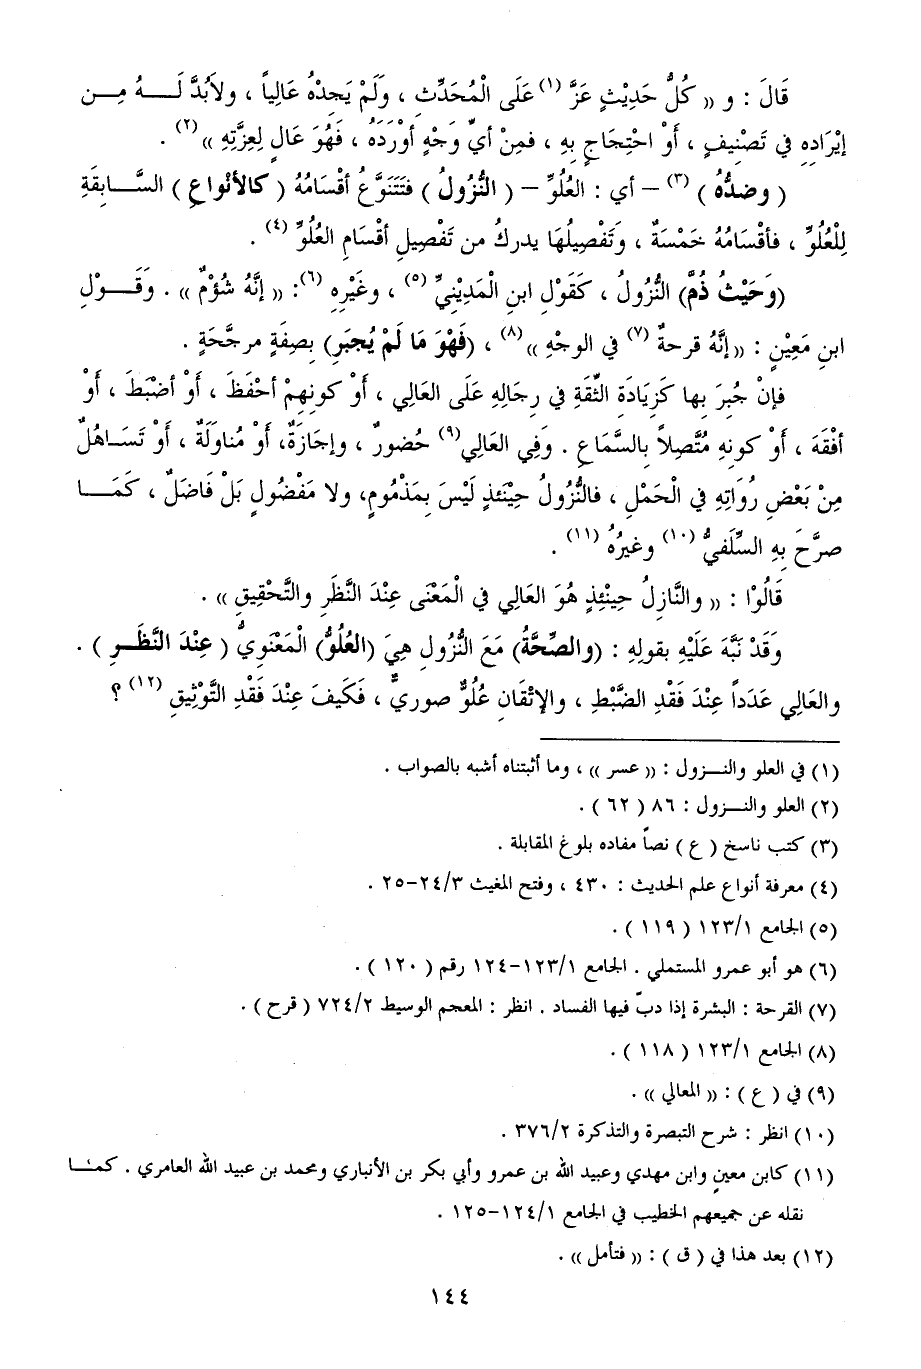 قَالَ : و « كُلُّ حَدِيْثٍ عَزَّ (١) عَلَى الْمُحَدِّثِ ، ولَمْ يَجِدْهُ عَالِياً ، ولاَبُدَّ لَــهُ مِــن
إيْرَادِهِ في تَصْنِيفٍ ، أَوْ احْتِجَاجٍ بِهِ ، فمِنْ أيِّ وَجْهٍ أوْرَدَهُ ، فَهُوَ عَالٍ لِعِزَّتِهِ » (٢) .
( وضدُّهُ ) (٣) – أي : العُلُوِّ – ( النُّزُولُ ) فتَتَنوَّعُ أقْسَامُهُ ( كالأنْواعِ ) السَّــابِقَةِ
لِلْعُلُوِّ ، فأقْسَامُهُ خَمْسَةٌ ، وتَفْصِيلُهَا يدركُ من تَفْصِيلِ أقْسَامِ العُلُوِّ (٤) .
(وَحَيْثُ ذُمَّ) النُّزُولُ ، كَقَوْلِ ابنِ الْمَدِيْنِيِّ (٥) ، وغَيْرِهِ (٦): « إنَّهُ شُؤْمٌ » . وقَــوْلِ
ابنِ مَعِيْنٍ : « إنَّهُ قرحةٌ (٧) في الوجْهِ » (٨) ، (فَهْوَ مَا لَمْ يُجبَر) بصِفَةٍ مرجَّحَةٍ .
فإنْ جُبِرَ بها كَزِيَادَةِ الثِّقَةِ في رِجَالِهِ عَلَى العَالِي ، أَوْ كونِهِمْ أحْفَظَ ، أَوْ أضْبَطَ ، أَوْ
أفْقَهَ ، أَوْ كونِهِ مُتَّصِلاً بالسَّمَاعِ . وَفِي العَالِي (٩) حُضورٌ ، وإجَازَةٌ، أَوْ مُناولَةٌ ، أَوْ تَسَــاهُلٌ
مِنْ بَعْضِ رُوَاتِهِ في الْحَمْلِ ، فالنُّزُولُ حِيْنَئِذٍ لَيْسَ بِمَذْمُومٍ، ولا مَفْضُولٍ بَلْ فَاضلٌ ، كَمَــا
صرَّحَ بِهِ السِّلَفيُّ (١٠) وغيرُهُ (١١) .
قَالُوْا : « والنَّازِلُ حِيْنَئِذٍ هُوَ العَالِي في الْمَعْنَى عِنْدَ النَّظَرِ والتَّحْقِيقِ » .
وَقَدْ نَبَّهَ عَلَيْهِ بقولِهِ : (والصِّحَّةُ) مَعَ النُّزُولِ هِيَ (العُلُوُّ) الْمَعْنَوِيُّ ( عِنْدَ النَّظَــرِ ) .
والعَالِي عَدَداً عِنْدَ فَقْدِ الضَّبْطِ ، والإتْقَانِ عُلُوٌّ صوريٌّ ، فَكَيفَ عِنْدَ فَقْدِ التَّوْثِيقِ (١٢) ؟
(١) في العلو والنــزول : « عسر » ، وما أثبتناه أشبه بالصواب .
(٢) العلو والنــزول : ٨٦ ( ٦٢ ) .
(٣) كتب ناسخ ( ع ) نصاً مفاده بلوغ المقابلة .
(٤) معرفة أنواع علم الحديث : ٤٣٠ ، وفتح المغيث ٣/ ٢٤-٢٥ .
(٥) الجامع ١/ ١٢٣ ( ١١٩ ) .
(٦) هو أبو عمرو المستملي . الجامع ١/ ١٢٣-١٢٤ رقم ( ١٢٠ ) .
(٧) القرحة : البشرة إذا دبّ فيها الفساد . انظر : المعجم الوسيط ٢/ ٧٢٤ ( قرح ) .
(٨) الجامع ١/ ١٢٣ ( ١١٨ ) .
(٩) في ( ع ) : « المعالي » .
(١٠) انظر : شرح التبصرة والتذكرة ٢/ ٣٧٦ .
(١١) كابن معينٍ وابن مهدي وعبيد الله بن عمرو وأبي بكر بن الأنباري ومحمد بن عبيد الله العامري . كمــا
نقله عن جميعهم الخطيب في الجامع ١/ ١٢٤-١٢٥ .
(١٢) بعد هذا في ( ق ) : « فتأمل » .
١٤٤